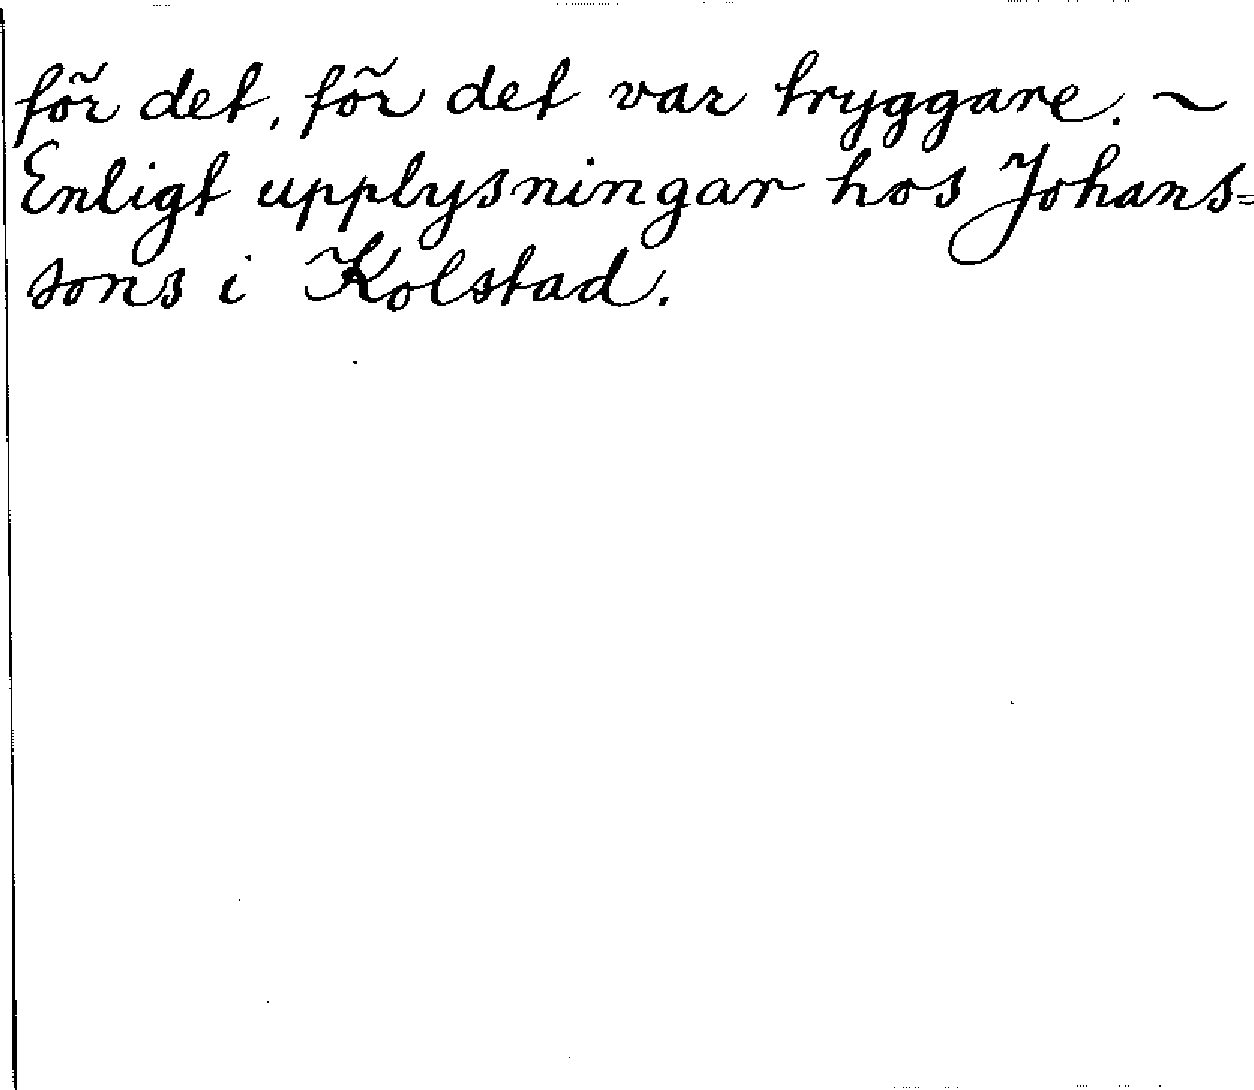 för det, för det var tryggare. ~
Enligt upplysningar hos Johans=
sons i Kolstad.